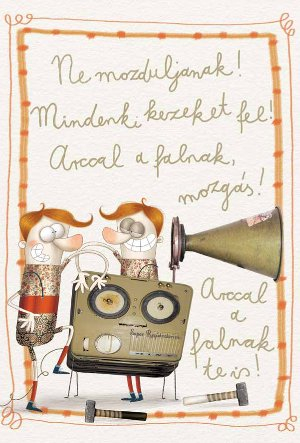 Ne mozduljanak!
Mindenki kezeket fel!
Arccal a falnak,
mozgás!
Arccal
a
falnak
te is!